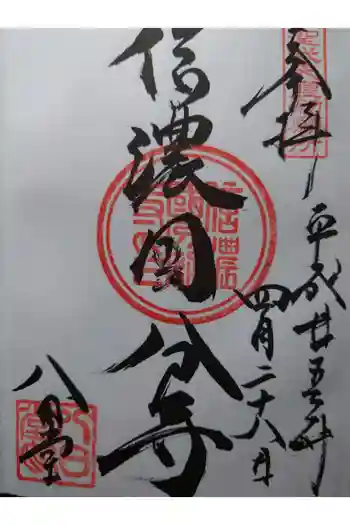 奉拝
平成廿五年
四月二十八日
信濃国分寺
八日堂